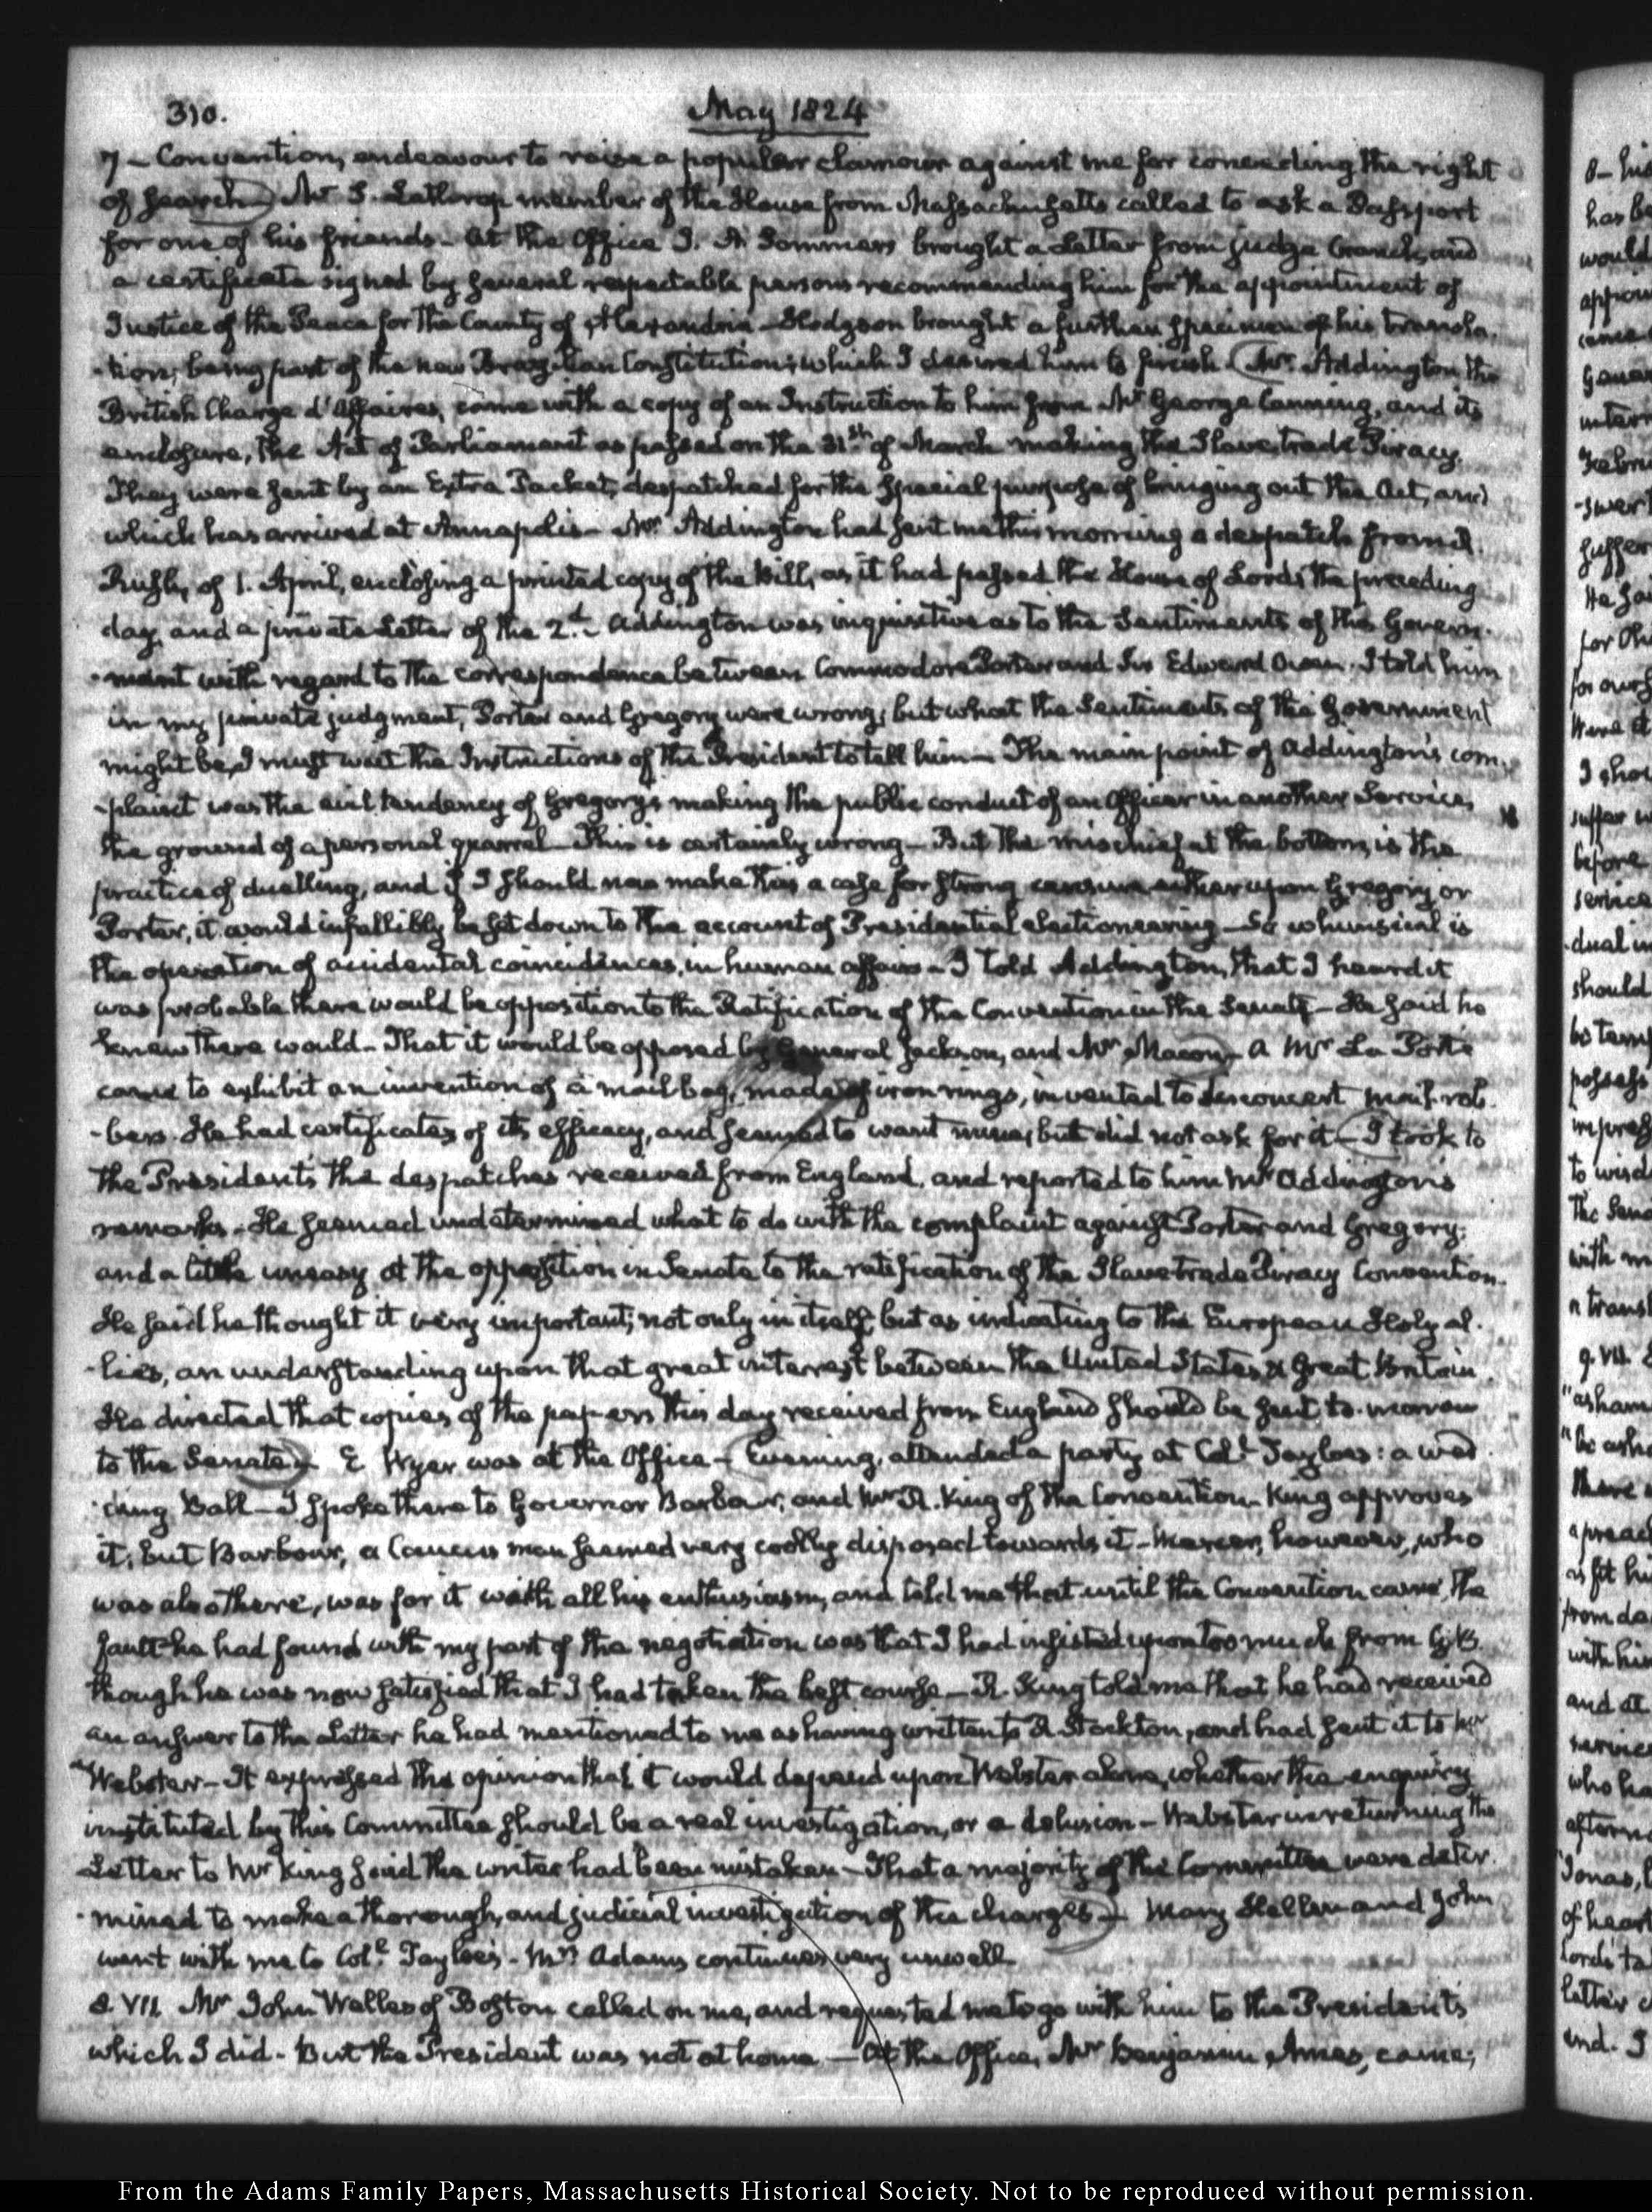 310.
May 1824
7 - Convention, endeavour to raise a popular clamour against me for conceding the right
of search - Mr. S. Lathrop member of the House from Massachusetts called to ask a Passport
for one of his friends - At the Office I. A. Sommers brought a Letter from judge Cranch, and
a certificate signed by several respectable persons recommending him for the appointment of
Justice of the Peace for the County of Alexandria - Hodgson brought a further specimen of his transla-
-tion; being part of the new Brazilian Constitution; which I desired him to finish. Mr. Addington the
British Chargé d'Affaires, came with a copy of an Instruction to him from Mr George Canning, and its
enclosure, the Act of Parliament as passed on the 31st. of March making the Slave trade Piracy.
They were sent by an Extra Packet, despatched for the special purpose of bringing out the Act, and
which has arrived at Annapolis - Mr. Addington had sent me this morning a despatch from R.
Rush, of 1. April, enclosing a printed copy of the Bill, as it had passed the House of Lords the preceding
day, and a private Letter of the 2.d - Addington was inquisitive as to the Sentiments of this Govern-
-ment with regard to the correspondence between Commodore Porter and Sir Edward Owen. I told him
in my private judgment, Porter and Gregory were wrong; but what the Sentiments of the Government
might be, I must wait the Instructions of the President to tell him - The main point of Addington's com-
-plaint was the evil tendency of Gregory's making the public conduct of an Officer in another Service,
the ground of a personal quarrel - This is certainly wrong - But the mischief at the bottom, is the
practice of duelling, and if I should now make this a case for strong censure either upon Gregory or
Porter, it would infallibly be set down to the account of Presidential electioneering - So whimsical is
the operation of accidental coincidences, in human affairs - I told Addington, that I heard it
was probable there would be opposition to the Ratification of the Convention in the Senate - He said he
knew there would - That it would be opposed by General Jackson, and Mr Macon - A Mr La Porte
came to exhibit an invention of a mail bag, made of iron rings, invented to disconcert mail-rob-
-bers. He had certificates of its efficacy, and seemed to want mine, but did not ask for it - I took to
the President's the despatches received from England, and reported to him Mr Addington's
remarks - He seemed undetermined what to do with the complaint against Porter and Gregory:
and a little uneasy at the opposition in Senate to the ratification of the Slave trade Piracy Convention.
He said he thought it very important; not only in itself, but as indicating to the European Holy al-
-lies, an understanding upon that great interest between the United States & Great Britain.
He directed that copies of the papers this day received from England should be sent to-morrow
to the Senate - E Wyer was at the Office - Evening, attended a party at Coll. Tayloe's: a wed-
-ding Ball - I spoke there to Governor Barbour, and Mr R. King of the Convention. King approves
it; but Barbour, a Caucus man seemed very coolly disposed towards it - Mercer, however, who
was also there, was for it with all his enthusiasm, and told me that until the Convention came, the
fault he had found with my part of the negotiation was that I had insisted upon too much from G. B.
though he was now satisfied that I had taken the best course - R. King told me that he had received
an answer to the Letter he had mentioned to me as having written to R Stockton, and had sent it to Mr
Webster - It expressed the opinion that it would depend upon Webster alone, whether the enquiry
instituted by this Committee should be a real investigation, or a delusion - Webster in returning the
Letter to Mr King said the writer had been mistaken - That a majority of the Committee were deter-
-mined to make a thorough, and judicial investigation of the charges - Mary Hellen and John
went with me to Col.l Tayloe's - Mrs. Adams continues very unwell
8. VII. Mr John Welles of Boston called on me, and requested me to go with him to the President's
which I did - But the President was not at home - At the Office, Mr Benjamin Ames, came;
From the Adams Family Papers, Massachusetts Historical Society. Not to be reproduced without permission.